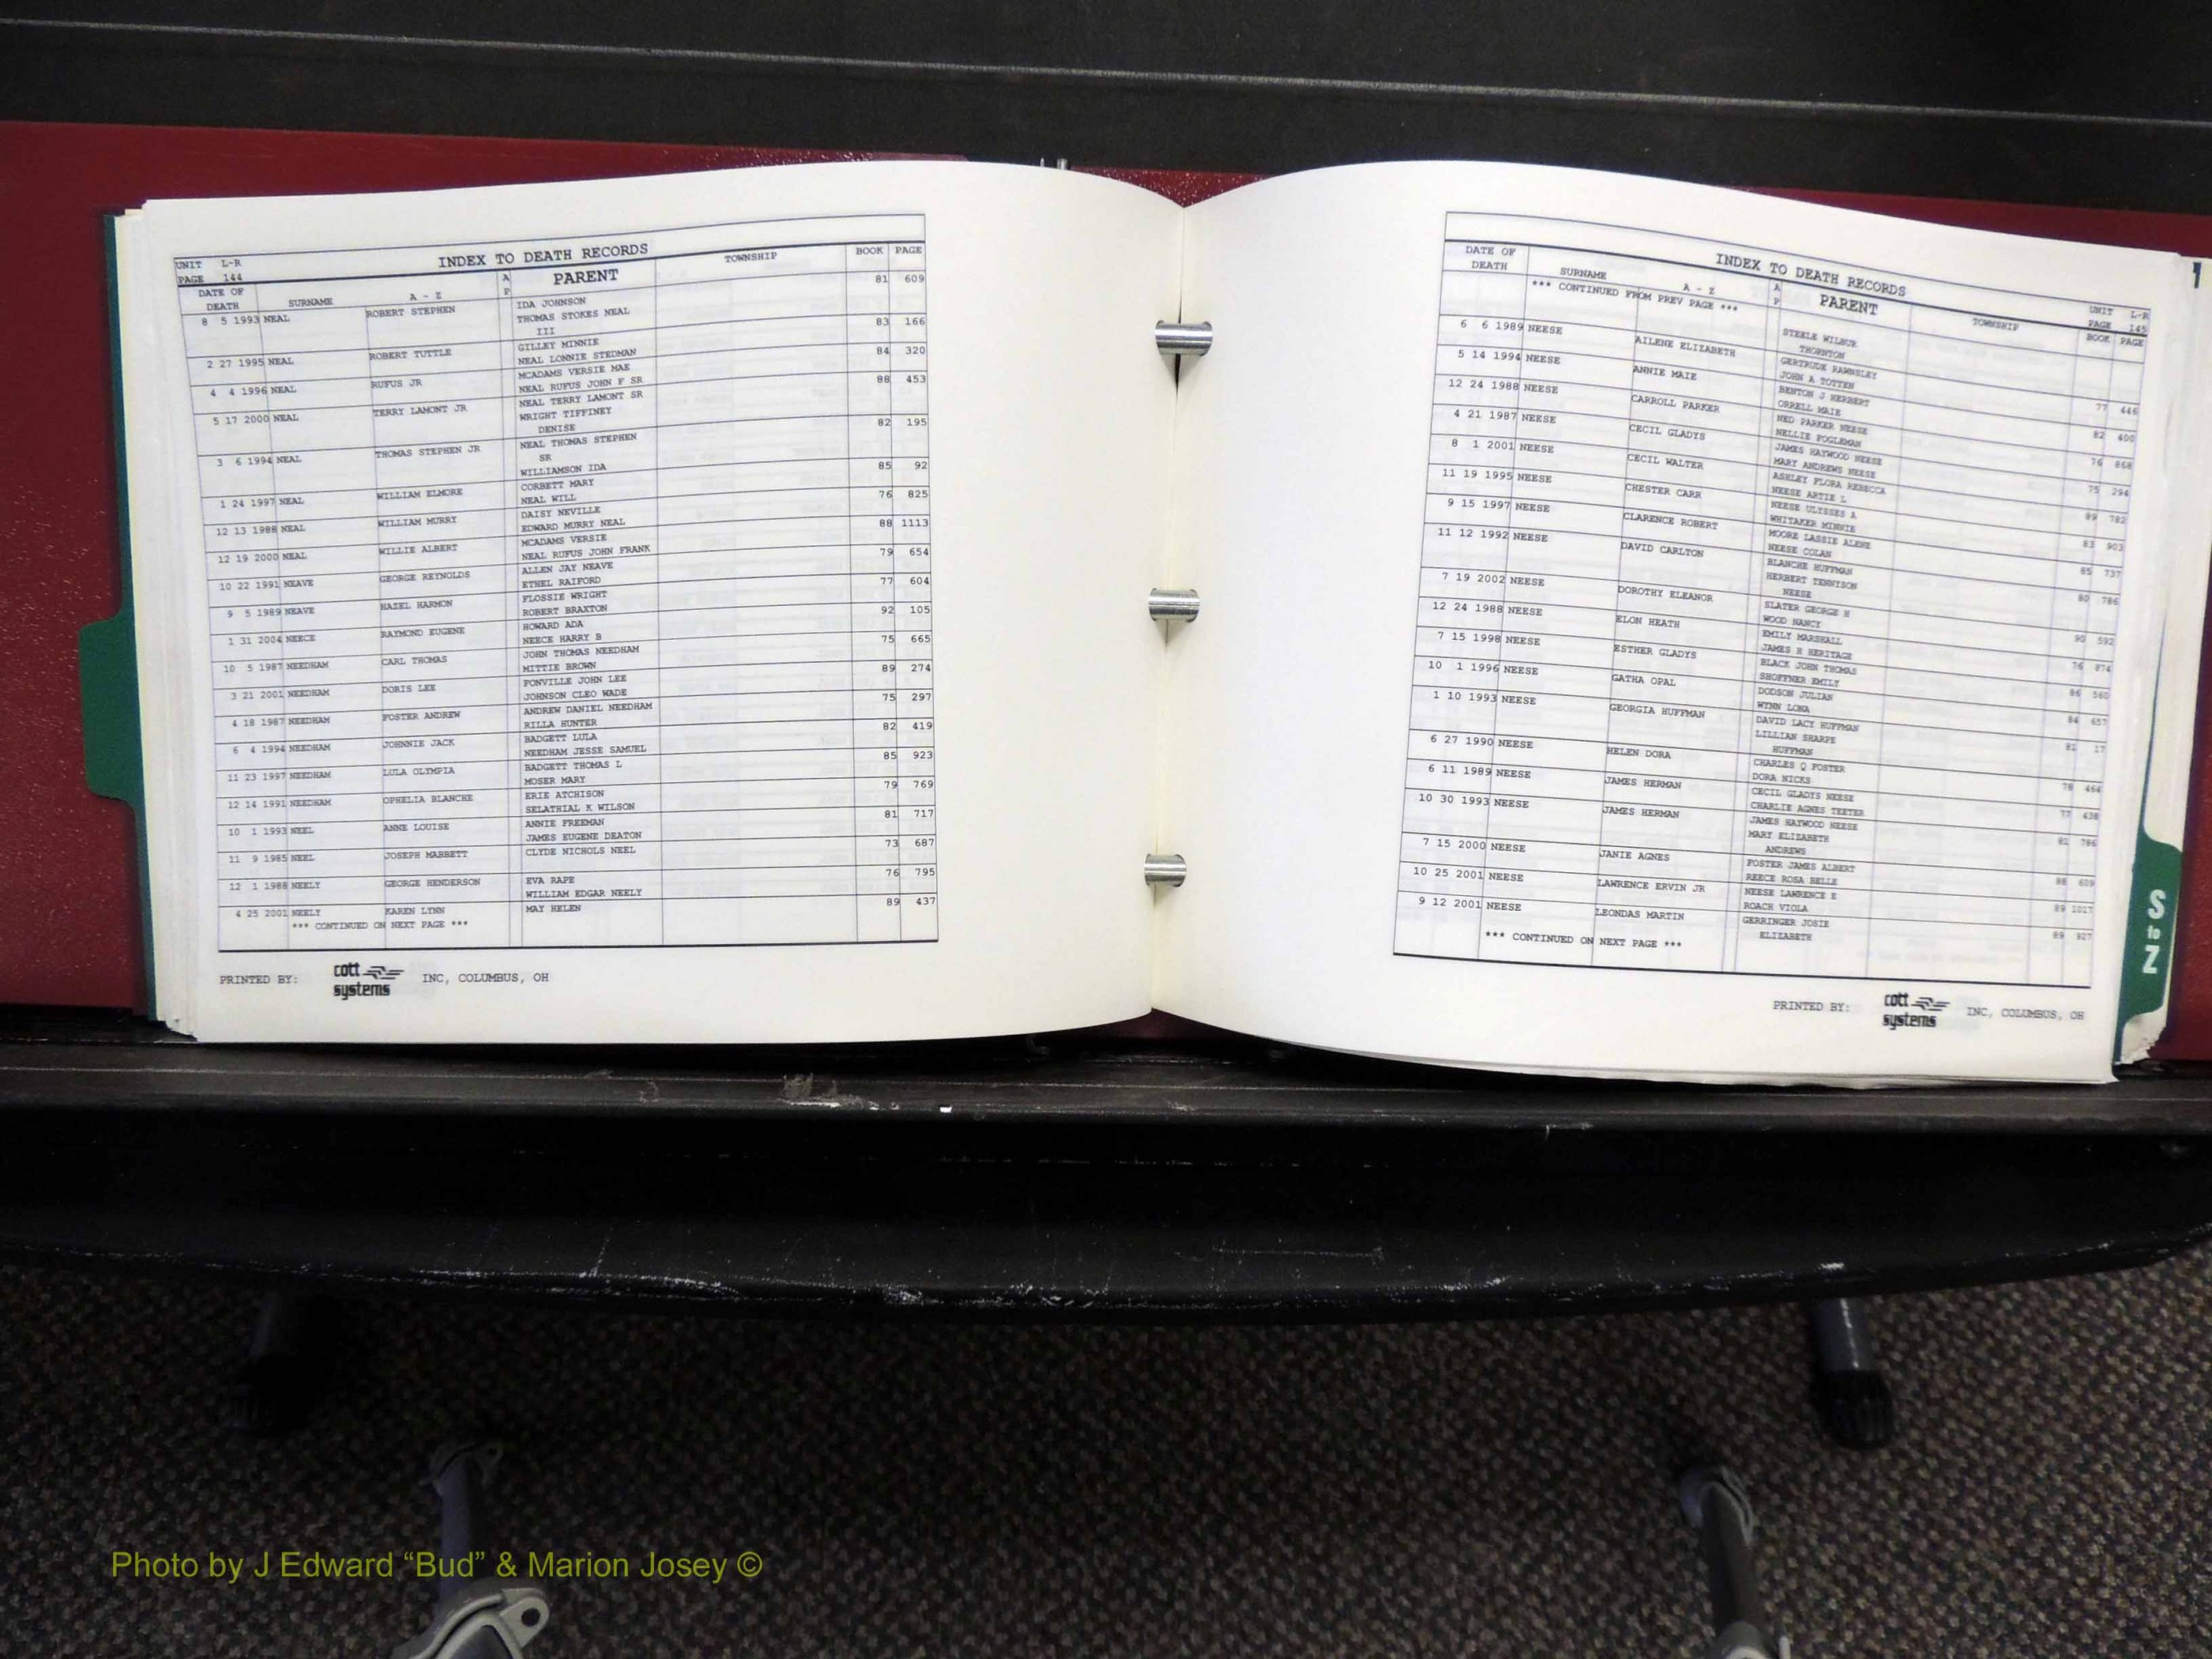 UNIT L-R
PAGE 144
INDEX TO DEATH RECORDS
DATE OF DEATH SURNAME A - Z A P PARENT TOWNSHIP BOOK PAGE
8 5 1993 NEAL ROBERT STEPHEN IDA JOHNSON 81 609
THOMAS STOKES NEAL
III
2 27 1995 NEAL ROBERT TUTTLE GILLEY MINNIE 83 166
NEAL LONNIE STEDMAN
4 4 1996 NEAL RUFUS JR MCADAMS VERSIE MAE 84 320
NEAL RUFUS JOHN F SR
5 17 2000 NEAL TERRY LAMONT JR NEAL TERRY LAMONT SR 88 453
WRIGHT TIFFINEY
DENISE
3 6 1994 NEAL THOMAS STEPHEN JR NEAL THOMAS STEPHEN 82 195
SR
WILLIAMSON IDA
1 24 1997 NEAL WILLIAM ELMORE CORBETT MARY 85 92
NEAL WILL
12 13 1988 NEAL WILLIAM MURRY DAISY NEVILLE 76 825
EDWARD MURRY NEAL
12 19 2000 NEAL WILLIE ALBERT MCADAMS VERSIE 88 1113
NEAL RUFUS JOHN FRANK
10 22 1991 NEAVE GEORGE REYNOLDS ALLEN JAY NEAVE 79 654
ETHEL RAIFORD
9 5 1989 NEAVE HAZEL HARMON FLOSSIE WRIGHT 77 604
ROBERT BRAXTON
1 31 2004 NEECE RAYMOND EUGENE HOWARD ADA 92 105
NEECE HARRY B
10 5 1987 NEEDHAM CARL THOMAS JOHN THOMAS NEEDHAM 75 665
MITTIE BROWN
3 21 2001 NEEDHAM DORIS LEE FONVILLE JOHN LEE 89 274
JOHNSON CLEO WADE
4 18 1987 NEEDHAM FOSTER ANDREW ANDREW DANIEL NEEDHAM 75 297
RILLA HUNTER
6 4 1994 NEEDHAM JOHNNIE JACK BADGETT LULA 82 419
NEEDHAM JESSE SAMUEL
11 23 1997 NEEDHAM LULA OLYMPIA BADGETT THOMAS L 85 923
MOSER MARY
12 14 1991 NEEDHAM OPHELIA BLANCHE ERIE ATCHISON 79 769
SELATHIAL K WILSON
10 1 1993 NEEL ANNE LOUISE ANNIE FREEMAN 81 717
JAMES EUGENE DEATON
11 9 1985 NEEL JOSEPH MABBETT CLYDE NICHOLS NEEL 73 687
12 1 1988 NEELY GEORGE HENDERSON EVA RAPE 76 795
WILLIAM EDGAR NEELY
4 25 2001 NEELY KAREN LYNN MAY HELEN 89 437
*** CONTINUED ON NEXT PAGE ***
PRINTED BY: cott systems INC, COLUMBUS, OH
INDEX TO DEATH RECORDS
UNIT L-R
PAGE 145
DATE OF DEATH SURNAME A - Z A P PARENT TOWNSHIP BOOK PAGE
*** CONTINUED FROM PREV PAGE ***
STEELE WILBUR
THORNTON
6 6 1989 NEESE AILENE ELIZABETH GERTRUDE RAWNSLEY 77 446
JOHN A TOTTEN
5 14 1994 NEESE ANNIE MAIE BENTON J HERBERT 82 400
ORRELL MAIE
12 24 1988 NEESE CARROLL PARKER NED PARKER NEESE 76 868
NELLIE FOGLEMAN
4 21 1987 NEESE CECIL GLADYS JAMES HAYWOOD NEESE 75 294
MARY ANDREWS NEESE
8 1 2001 NEESE CECIL WALTER ASHLEY FLORA REBECCA 89 782
NEESE ARTIE L
11 19 1995 NEESE CHESTER CARR NEESE ULYSSES A 83 903
WHITAKER MINNIE
9 15 1997 NEESE CLARENCE ROBERT MOORE LASSIE ALENE 85 737
NEESE COLAN
11 12 1992 NEESE DAVID CARLTON BLANCHE HUFFMAN 80 786
HERBERT TENNYSON
NEESE
7 19 2002 NEESE DOROTHY ELEANOR SLATER GEORGE H 90 592
WOOD NANCY
12 24 1988 NEESE ELON HEATH EMILY MARSHALL 76 874
JAMES H HERITAGE
7 15 1998 NEESE ESTHER GLADYS BLACK JOHN THOMAS 86 560
SHOFFNER EMILY
10 1 1996 NEESE GATHA OPAL DODSON JULIAN 84 657
WYNN LONA
1 10 1993 NEESE GEORGIA HUFFMAN DAVID LACY HUFFMAN 81 17
LILLIAN SHARPE
HUFFMAN
6 27 1990 NEESE HELEN DORA CHARLES Q FOSTER 78 464
DORA NICKS
6 11 1989 NEESE JAMES HERMAN CECIL GLADYS NEESE 77 438
CHARLIE AGNES TEETER
10 30 1993 NEESE JAMES HERMAN JAMES HAYWOOD NEESE 81 786
MARY ELIZABETH
ANDREWS
7 15 2000 NEESE JANIE AGNES FOSTER JAMES ALBERT 88 609
REECE ROSA BELLE
10 25 2001 NEESE LAWRENCE ERVIN JR NEESE LAWRENCE E 89 1017
ROACH VIOLA
9 12 2001 NEESE LEONDAS MARTIN GERRINGER JOSIE 89 927
ELIZABETH
*** CONTINUED ON NEXT PAGE ***
PRINTED BY: cott systems INC, COLUMBUS, OH
S to Z
Photo by J Edward “Bud” & Marion Josey ©